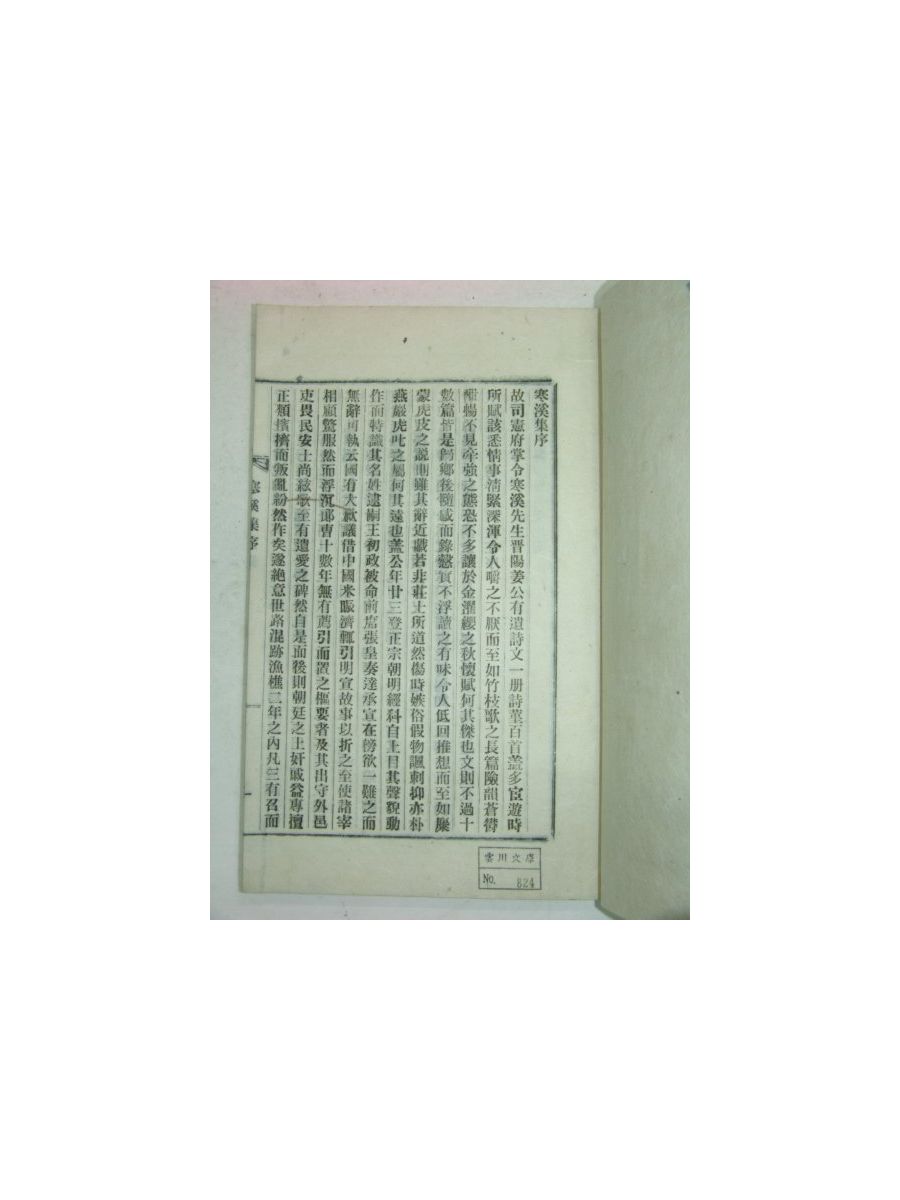 寒溪集序
故司憲府掌令寒溪先生晋陽姜公有遺詩文一册詩菫百首盖多宦遊時
所賦該悉情事淸緊深渾令人嚼之不厭而至如竹枝歌之長篇險韻蒼
暢不見牽強之態恐不多讓於金濯纓之秋懷賦何其傑也文則不過十
數篇皆是歸鄕後隨感而錄慤實不浮讀之有味令人低回推想而至如麋
蒙虎皮之說則雖其辭近戱若非莊士所道然傷時嫉俗假物諷刺抑亦朴
燕巖虎叱之屬何其遠也盖公年廿三登正宗朝明經科自上目其聲貌動
作而特識其名姓逮嗣王初政被命前席張皇奏達承宣在傍欲一難之而
無辭可執云國有大歉議借中國米賑濟輒引明宣故事以折之至使諸宰
相顧驚服然而浮沉郞曹十數年無有薦引而置之樞要者及其出守外邑
吏畏民安士尚絃歌至有遺愛之碑然自是而後則朝廷之上奸戚益專擅
正類擯擠而叛亂紛然作矣遂絶意世路混跡漁樵二年之內凡三有召而
寒溪集序
雲川文庫
No. 824